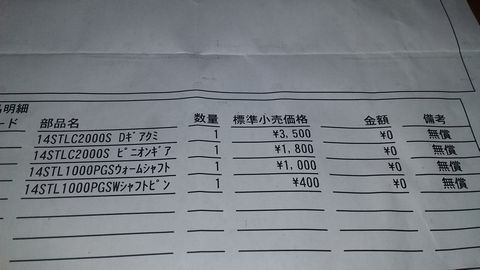 品明細
ード 部品名 数量 標準小売価格 金額 備考
14STLC2000S Dギアクミ 1 ¥3,500 ¥0 無償
14STLC2000S ピニオンギア 1 ¥1,800 ¥0 無償
14STL1000PGSウォームシャフト 1 ¥1,000 ¥0 無償
14STL1000PGSWシャフトピン 1 ¥400 ¥0 無償